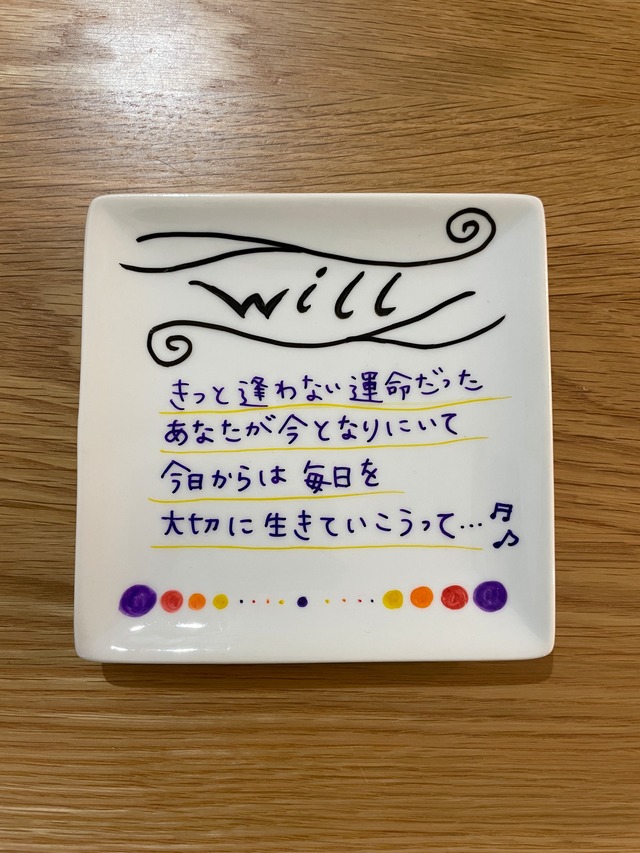 will
きっと逢わない運命だった
あなたが今となりにいて
今日からは 毎日を
大切に生きていこうって…